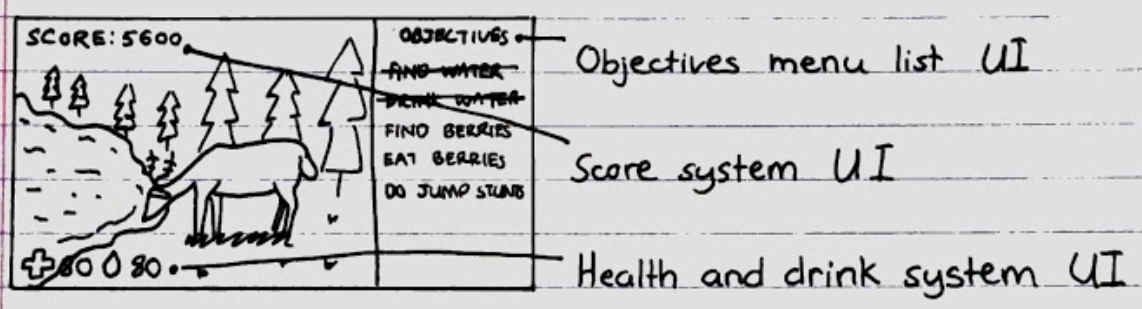 SCORE: 5600
OBJECTIVES
FIND WATER
DRINK WATER
FIND BERRIES
EAT BERRIES
DO JUMP STUNB
80 80
Objectives menu list UI
Score system UI
Health and drink system UI